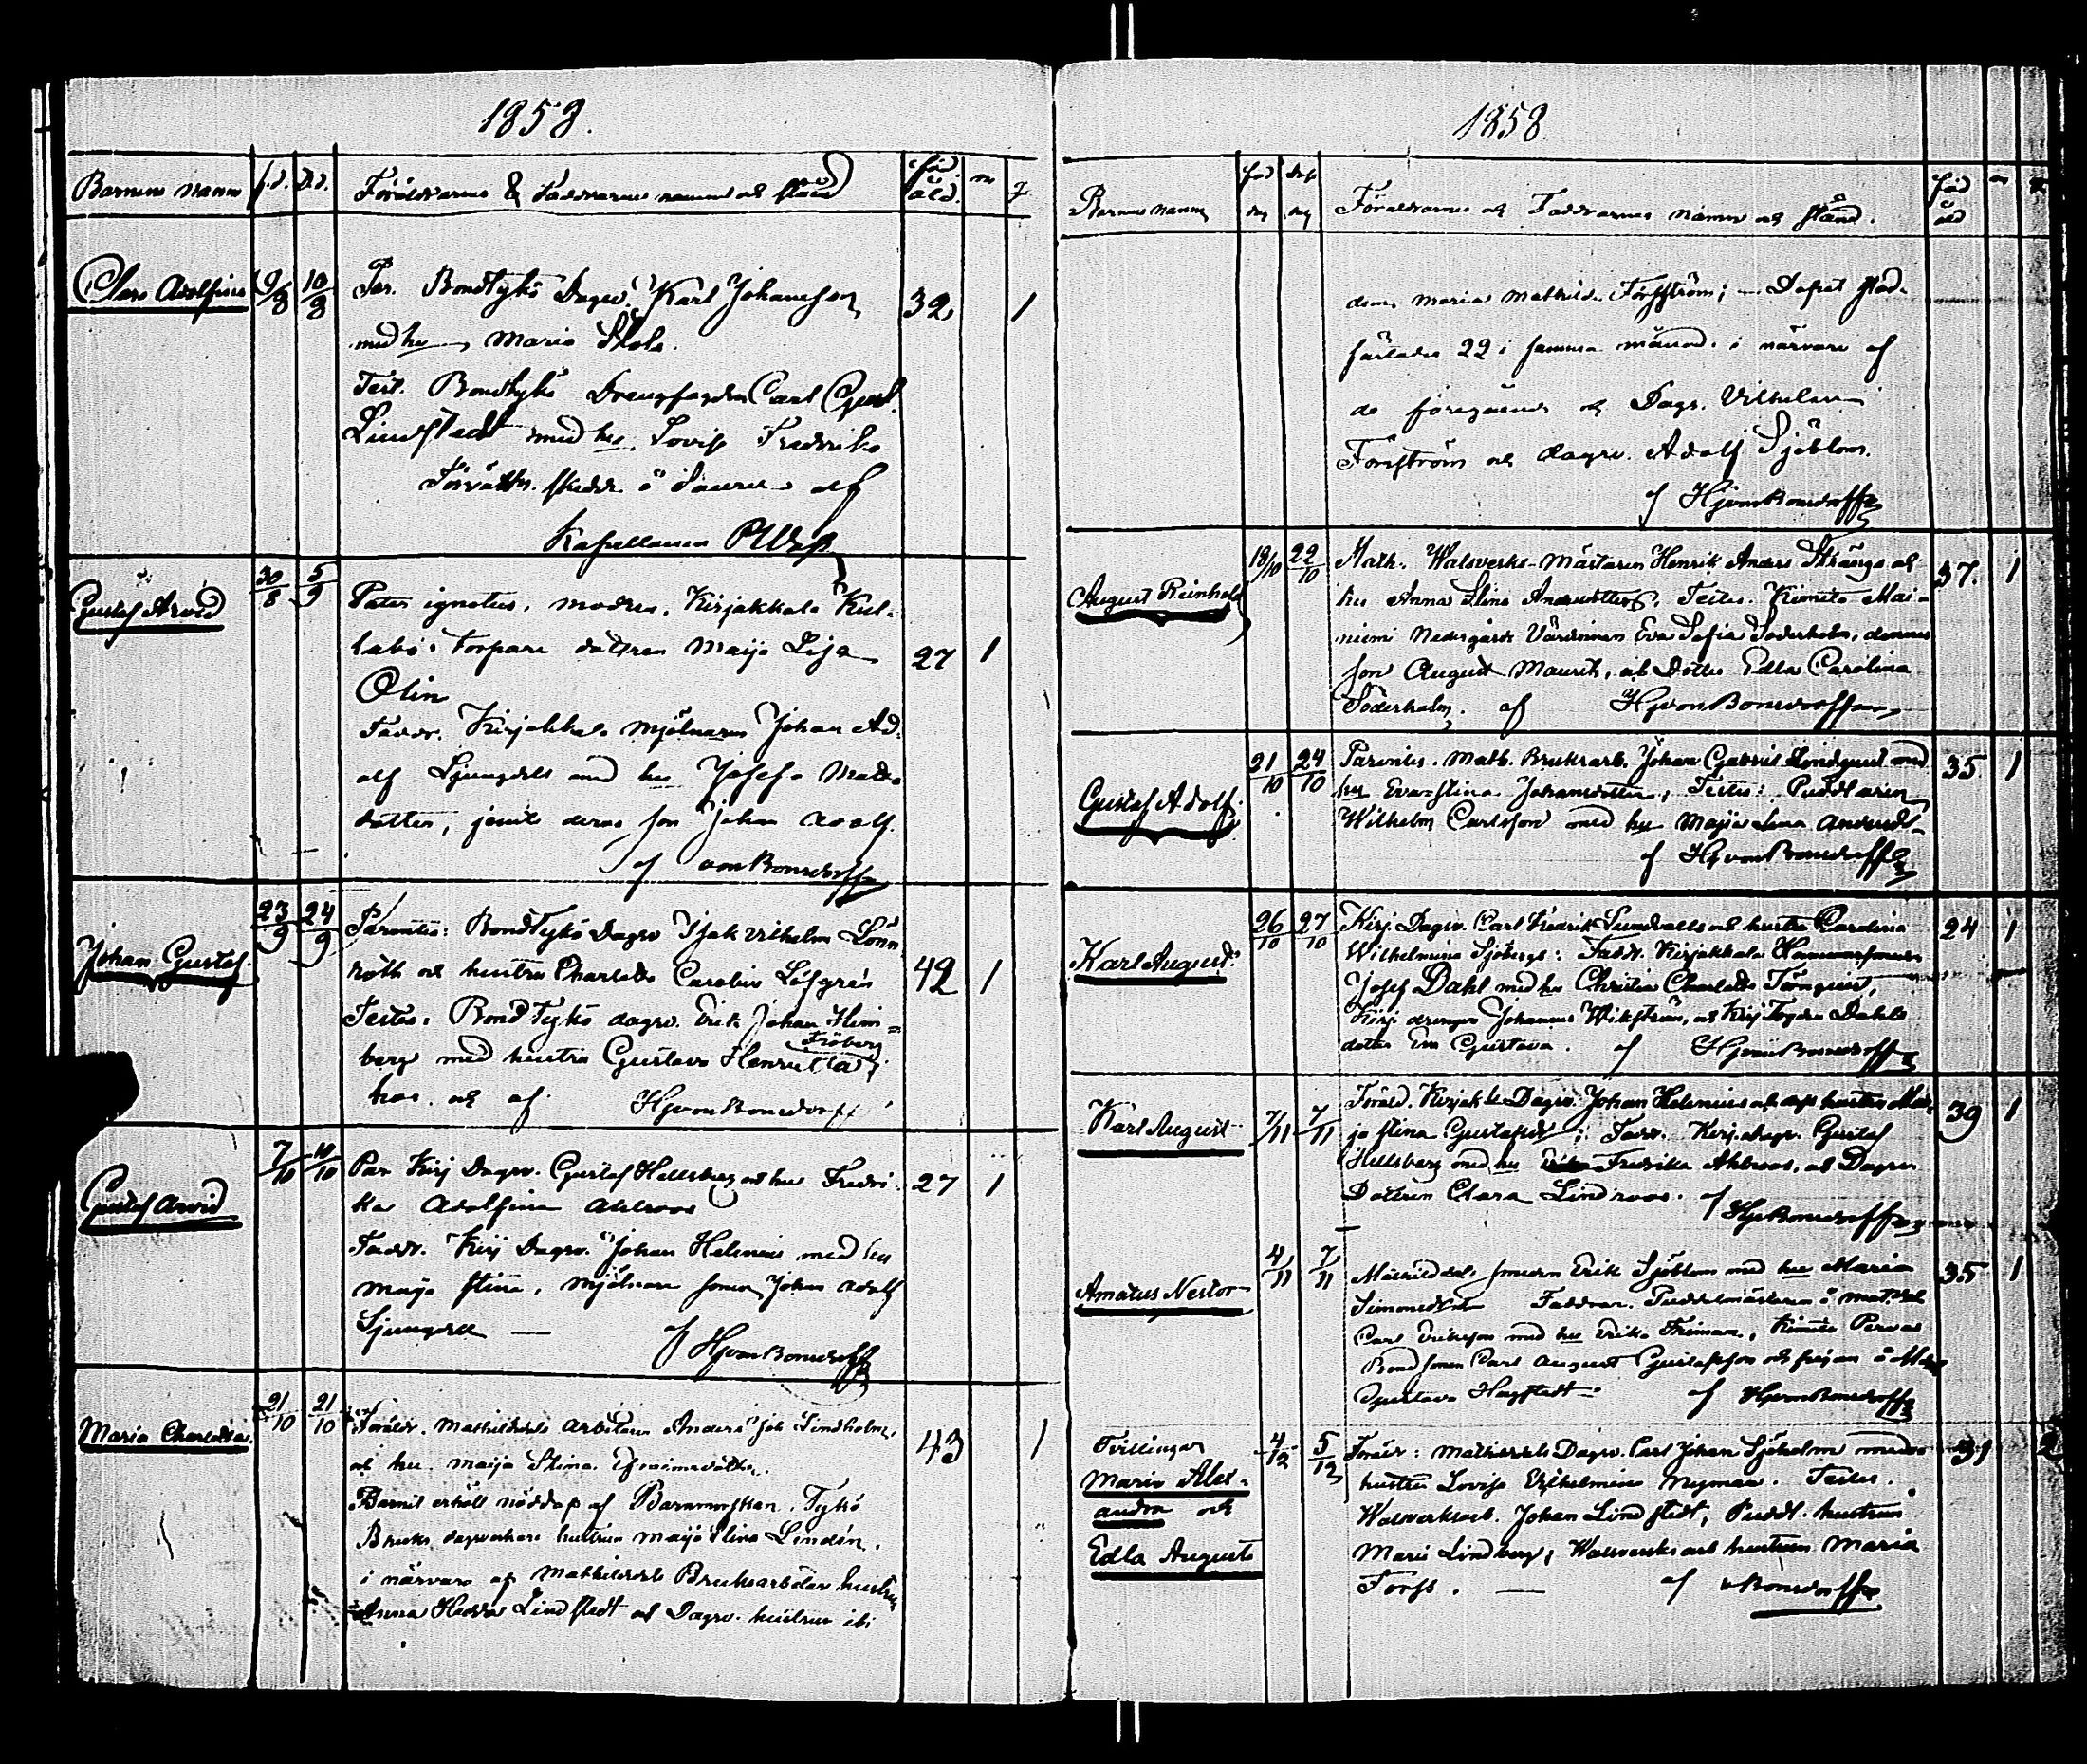 1858.
Barnens namn f.d. D.d. Föräldrarnes & Faddrarnes namn och stånd föd. åld. m q
Clara Adolfina 9/8 10/8 Par. Bondtykö Dagsv. Karl Johansson 32 1
med hu Maria
Test. Bondtykö Drengfogden Carl Gust.
Lindstedt med hu. Lovisa Fredrika
skedde å af
Kapellanen
Gustaf Arvid 30/8 5/9 Pater ignotus, modren, Kirjakkala Kul-
labo Torpare dottren Maija Lisa 27 1
Olin
Faddr. Kirjakkala Mjölnaren Johan Ad-
olf Ljungdell med hu Josefa Matts-
dotter, jemte deras son Johan Adolf.
af von Bonsdorff
Johan Gustaf. 23/9 24/9 Parentes: Bondtykö Dagsv Isak Vilhelm Lönn
roth och hustru Charlotta Carolina Löfgrén 42 1
Testes: Bond Tykö dagsv. Erik Johan Hem-
berg med hustru Gustava Henrietta Fröberg
has. och af HjvonBonsdorff
Gustaf Arvid 7/10 10/10 Par Kirj Dagsv. Gustaf Hellsberg och hu Fredri- 27 1
ka Adolfina Ahlroos
Faddr. Kirj Dagsv. Johan Helenius med hu
Maija Stina, mjölnare sonen Johan Adolf
Ljungdell — af HjvonBonsdorff
Maria Charlotta. 21/10 21/10 Föräldr. Mathildedals arbetaren Anders Joh Lindholm, 43 1
och hu. Maija Stina
Barnet erhöll nöddop af Barnmorskan. Tykö
Bruks dagsverkare hustrun Maija Stina Lindén,
i närvaro af Mathildedals Bruksarbetar hustrun
Anna Hedda Lindstedt och Dagsv. hustrun ibi
1858.
Barnens namn föd dag döp dag Föräldrarnes och Faddrarnes namn och stånd. föd åld m
dem, Maria Mathilda Forsström; — Dopet stad-
fästades 22 i samma månad i närvaro af
de föregående och Dagsv. Vilhelm
Forsström och dagsv. Adolf Sjöblom.
af HjvonBonsdorff
August Reinhold 18/10 22/10 Math. Walsverks-Mästaren Henrik Anders Strångs och 37. 1
hu Anna Stina Andersdotter. Testes. Kimito Mai-
niemi Nedergårds Värdinnan Eva Sofia Söderholm, dennes
son August Maurits, och Dotter Edla Carolina
Söderholm. af HjvonBonsdorff
Gustaf Adolf. 21/10 24/10 Parentes. Math. Bruksarb. Johan Gabriel Lindqvist med 35 1
hu Eva Stina Johansdotter, Testes: Puddlaren
Wilhelm Carlsson med hu Maja Lena Andersd-
af HjvonBonsdorff
Karl August. 26/10 27/10 Kirj Dagsv. Carl Fredrik Sundvalls och hustru Carolina 24 1
Wilhelmina Sjöbergs: Faddr. Kirjakkala Hammarsmeden
Josef Dahl med hu Christina Charlotta Törnqvist,
Kirj drengen Johannes Wikström, och Kirj Fogden Dahls
dotter Eva Gustava. af HjvonBonsdorff
Karl August 7/11 7/11 Föräld. Kirjakkla Dagsv. Johan Helenius och dess hustru Mar- 39 1
ja Stina Gustafsd; Faddr. Kirj. dagsv. Gustaf
Hellsberg med hu Fredrika Ahlroos, och Dagsv
Dottren Clara Lindroos. af HjvBonsdorff
Amatus Nestor 4/11 7/11 Mathilddal. smeden Erik Sjöblom med hu Maria 35 1
Simonsdotter Faddrar. Puddelmästaren å Mathdal
Carl Eriksson med hu Erika Friman, Kimito Pervas
Bond sonen Carl August Gustafsson och pigan å Math
Gustava Hagstedt — af HjvonBonsdorff
Tvillingar 4/12 5/12 Föräldr: Mathildedals Dagsv. Carl Johan Sjöholm med 31 2
Maria Alex- hustru Lovisa Wilhelmina Nyman. Testes.
andra och Walsverksarb. Johan Lindstedt, Puddl. hustrun
Edla Augusta Maria Lindberg, Walsverksarb hustrun Maria
Forss. — af vBonsdorff